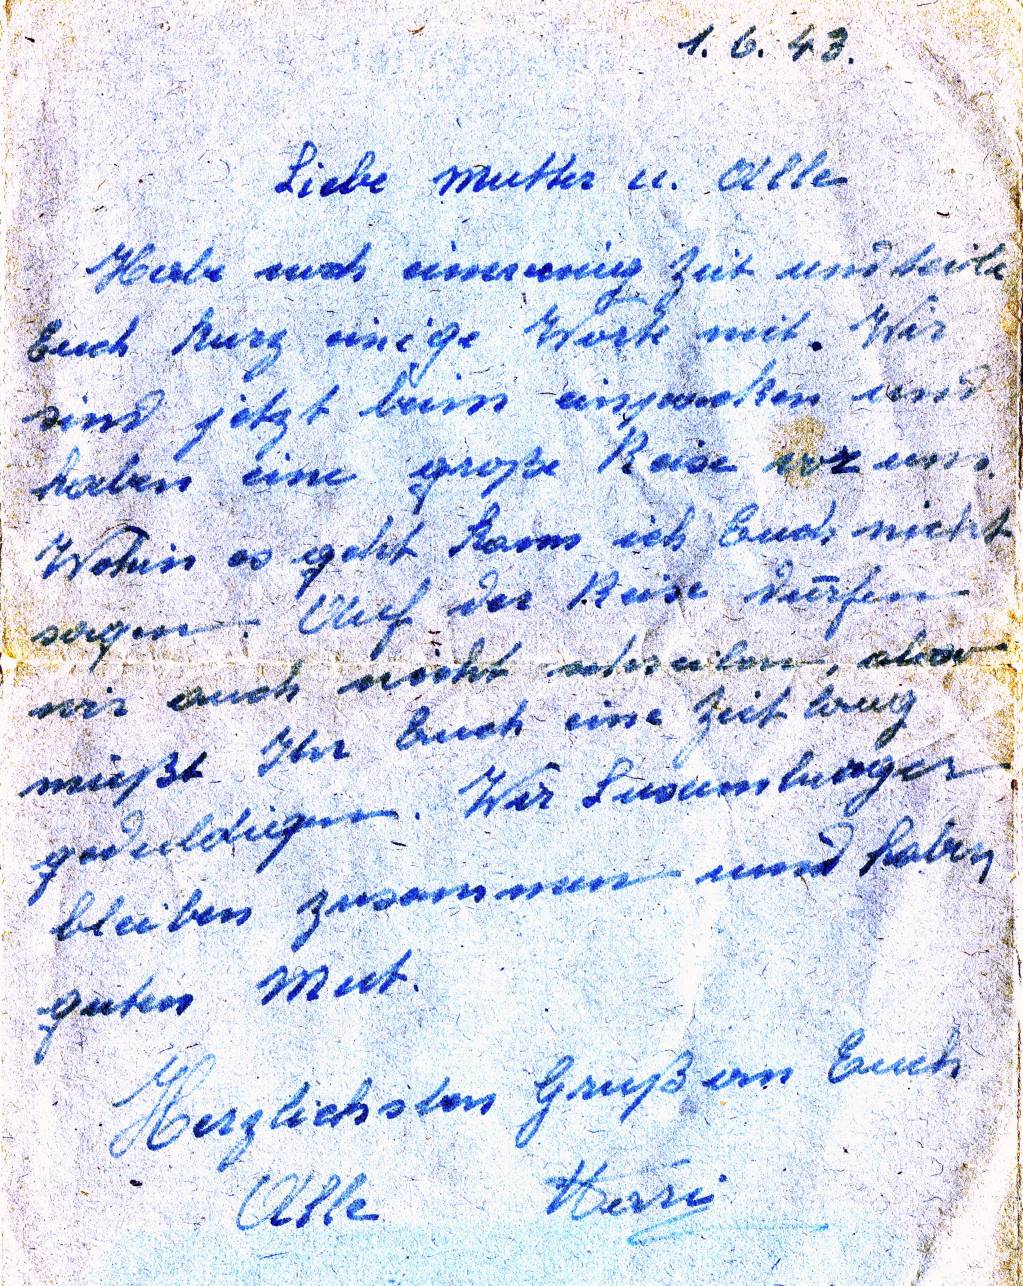 1. 6. 43.
Liebe Mutter u. Alle
Habe noch ein wenig Zeit und teile
Euch kurz einige Worte mit. Wir
sind jetzt beim einpacken und
haben eine große Reise vor uns.
Wohin es geht kann ich Euch nicht
sagen. Auf der Reise dürfen
wir auch nicht schreiben, also
müßt Ihr Euch eine Zeit lang
geduldigen. Wir Luxemburger
bleiben zusammen und haben
guten Mut.
Herzlichsten Gruß an Euch
Alle